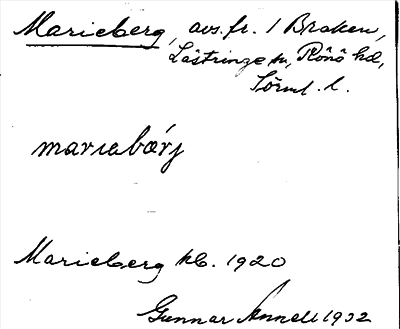 Marieberg, avs. fr. 1 Broken,
Lästringe sn, Rönö hd,
Sörml. l.
marıabærj
Marieberg kb. 1920
Gunnar Annell 1932